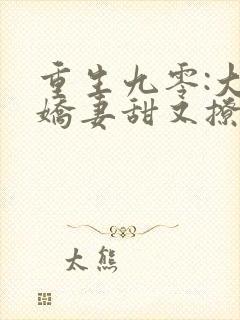 重生九零:大
嬌妻甜又撩
太熊